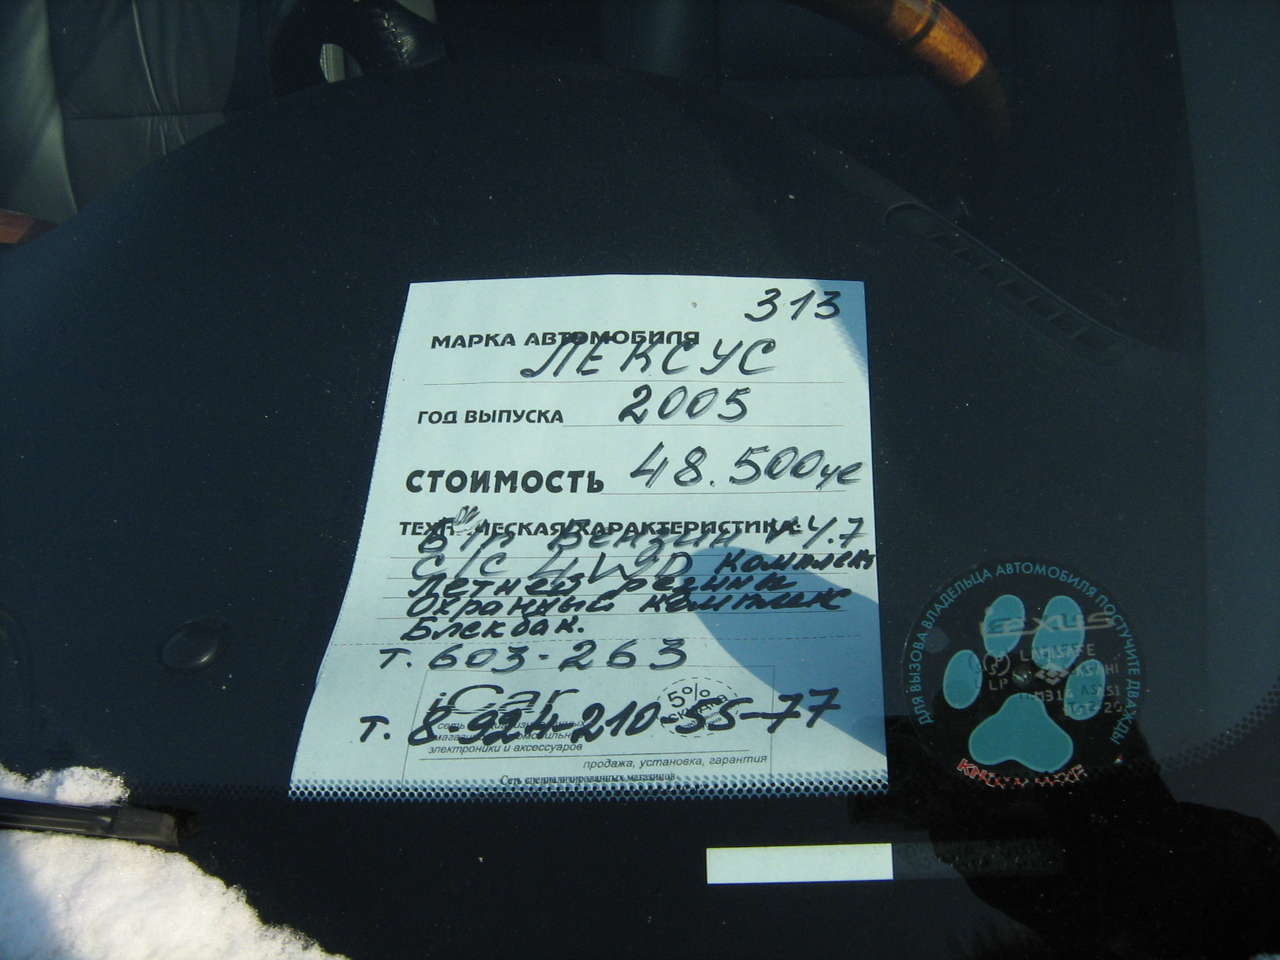 313
МАРКА АВТОМОБИЛЯ
ЛЕКСУС
ГОД ВЫПУСКА 2005
СТОИМОСТЬ 48.500уе
ТЕХНИЧЕСКАЯ ХАРАКТЕРИСТИКА:
Б/п Бензин V-4.7
С/С 4WD Комплект
Летней резины
Охранный комплекс
Блекбак.
Т. 603-263
iCar
5% СКИДКА
Т. 8-924-210-55-77
сеть специализированных
магазинов автомобильной
электроники и аксессуаров
продажа, установка, гарантия
Сеть специализированных магазинов
ДЛЯ ВЫЗОВА ВЛАДЕЛЬЦА АВТОМОБИЛЯ ПОСТУЧИТЕ ДВАЖДЫ
LEXUS
LAMISAFE
ASAHI